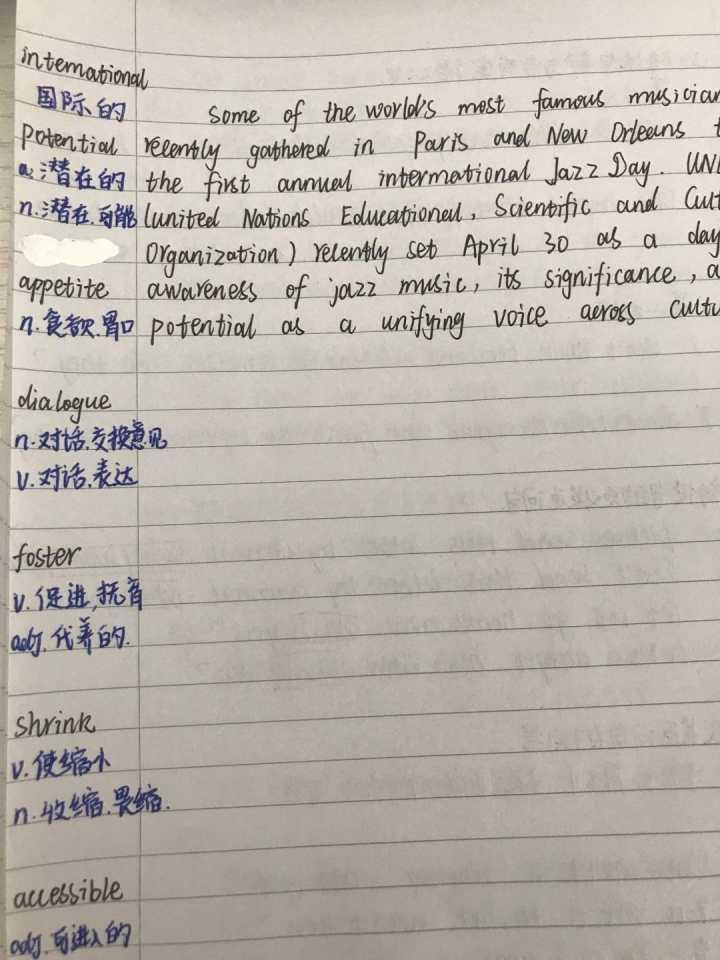 international
国际的
Some of the world's most famous musician
potential recently gathered in Paris and New Orleans t
a.潜在的 the first annual international Jazz Day. UN
n.潜在.可能 (united Nations Educational, Scientific and Cult
Organization) recently set April 30 as a day
appetite awareness of jazz music, its significance, a
n.食欲.胃口 potential as a unifying voice across cultu
dialogue
n.对话,交换意见
v.对话.表达
foster
v.促进,抚育
adj.代养的.
shrink
v.使缩小
n.收缩.畏缩.
accessible
adj.可进入的